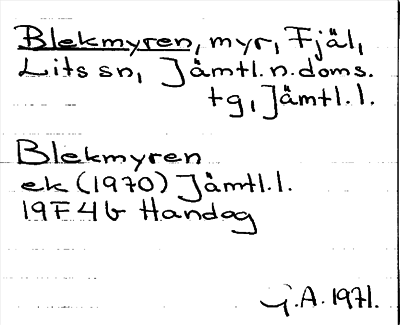 Blekmyren, myr, Fjäl,
Lits sn, Jämtl. n. doms.
tg, Jämtl. l.
Blekmyren
ek (1970) Jämtl. l.
19F 4b Handog
G.A. 1971.